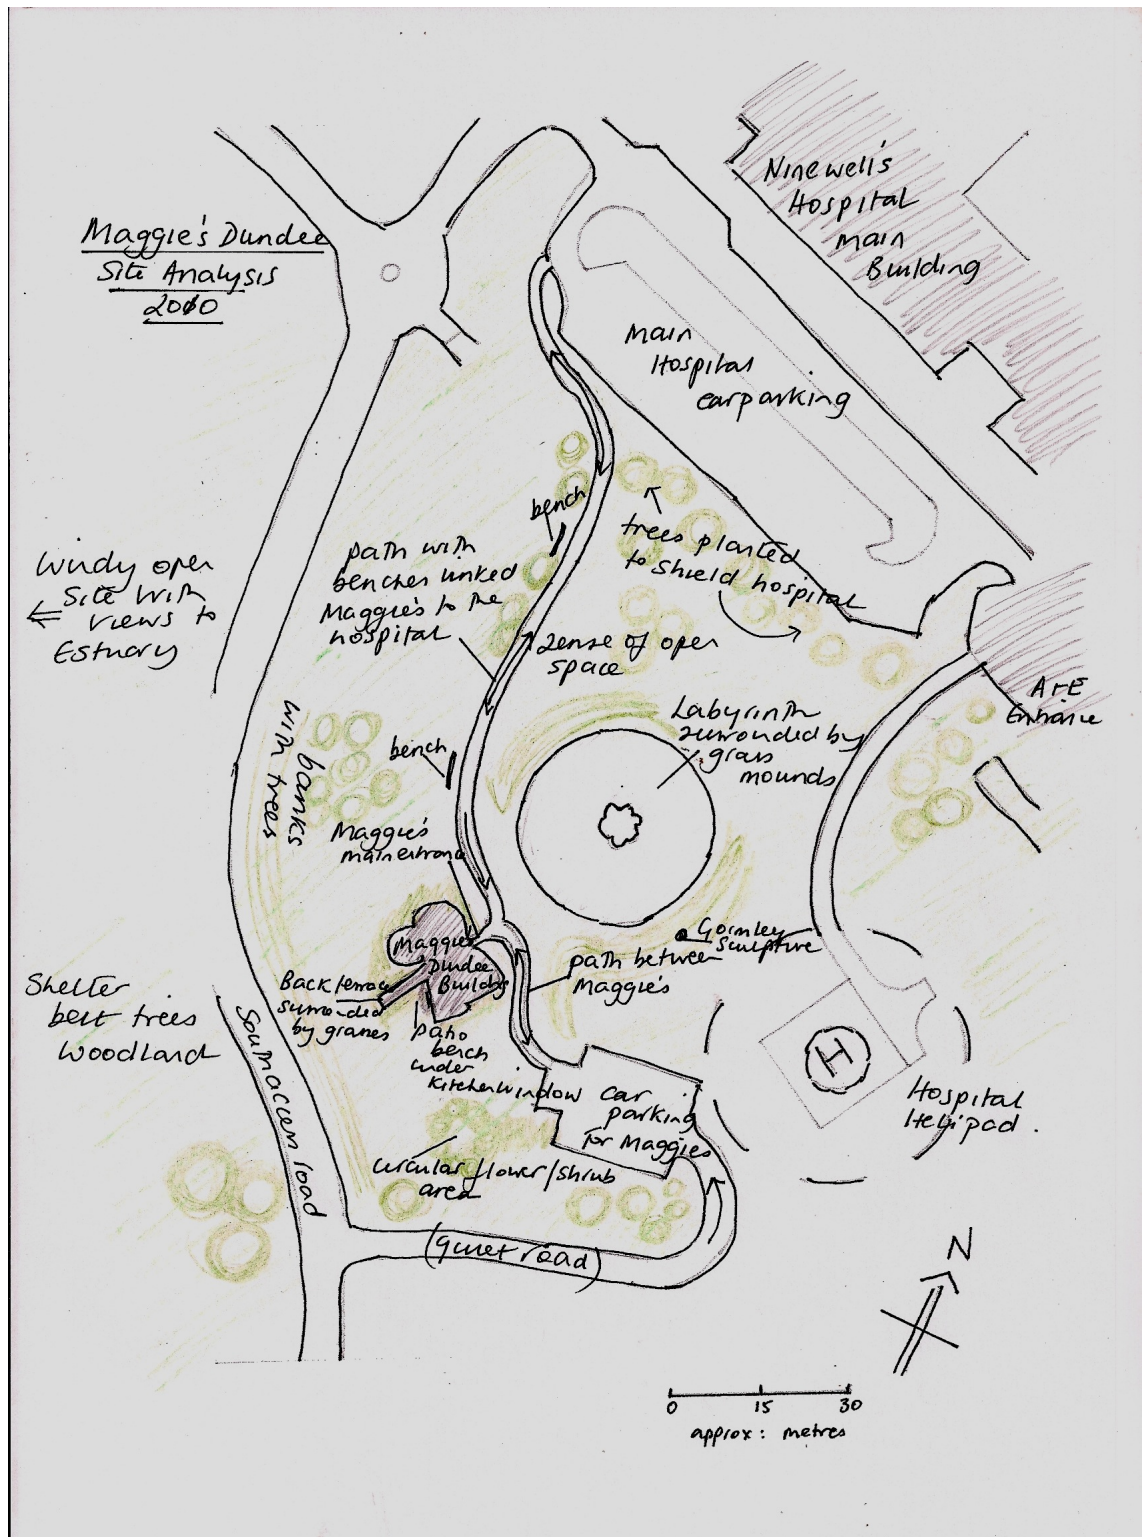 Maggie's Dundee
Site Analysis
2010
Ninewell's
Hospital
main
Building
main
Hospital
carparking
bench
trees planted
to shield hospital
path with
benches linked
Maggie's to the
hospital
sense of open
space
Windy open
Site with
views to
Estuary
A+E
Entrance
Labyrinth
surrounded by
grass
mounds
bench
banks
with trees
Maggie's
main entrance
Gormley
Sculpture
Maggie's
Dundee
Building
path between
Maggie's
Back terrace
surrounded
by grasses
Patio
bench
under
kitchen window
Shelter
belt trees
woodland
South access road
car
parking
for Maggies
H
Hospital
Helipad.
circular flower/shrub
area
(quiet road)
N
0 15 30
approx: metres